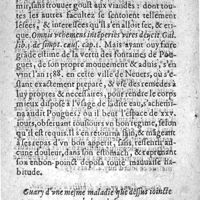 sin, sans trouver goust aux viandes : dont tou-
tes les autres facultez se sentoient tellement
lesées, & interessées qu'il s'a en alloit sec, & eti-
que. Omne vehement intemperies vires deijcit Gal.
lib. de sympt. caus. cap. Mais ayant ouy faire
grande estime de la vertu des fontaines de Pou-
gues, de son propre mouvement & aduis, s'y
vint l'an 1588. en ceste ville de Neuers, où s'e-
stant exempté, preparé, & vsé des remedes à
luy propres, & necessaires, pour rendre le corps
mieux disposé à l'vsage de ladite eau, s'achemi-
na audit Pougues; où il beut l'espace de xxv.
iours, obseruant tousiours vn bon regime, selon
qu'il estoit requis. & s'en retourna sain, & magnifi-
ses étapes d'vn bon appetit, sans sentir au-
cune douleur, dans son estomach, & apportant
son enbon-point & deposa toute mauuaise ha-
bitude.
Guary d'vne mesme maladie que dessus ioincte